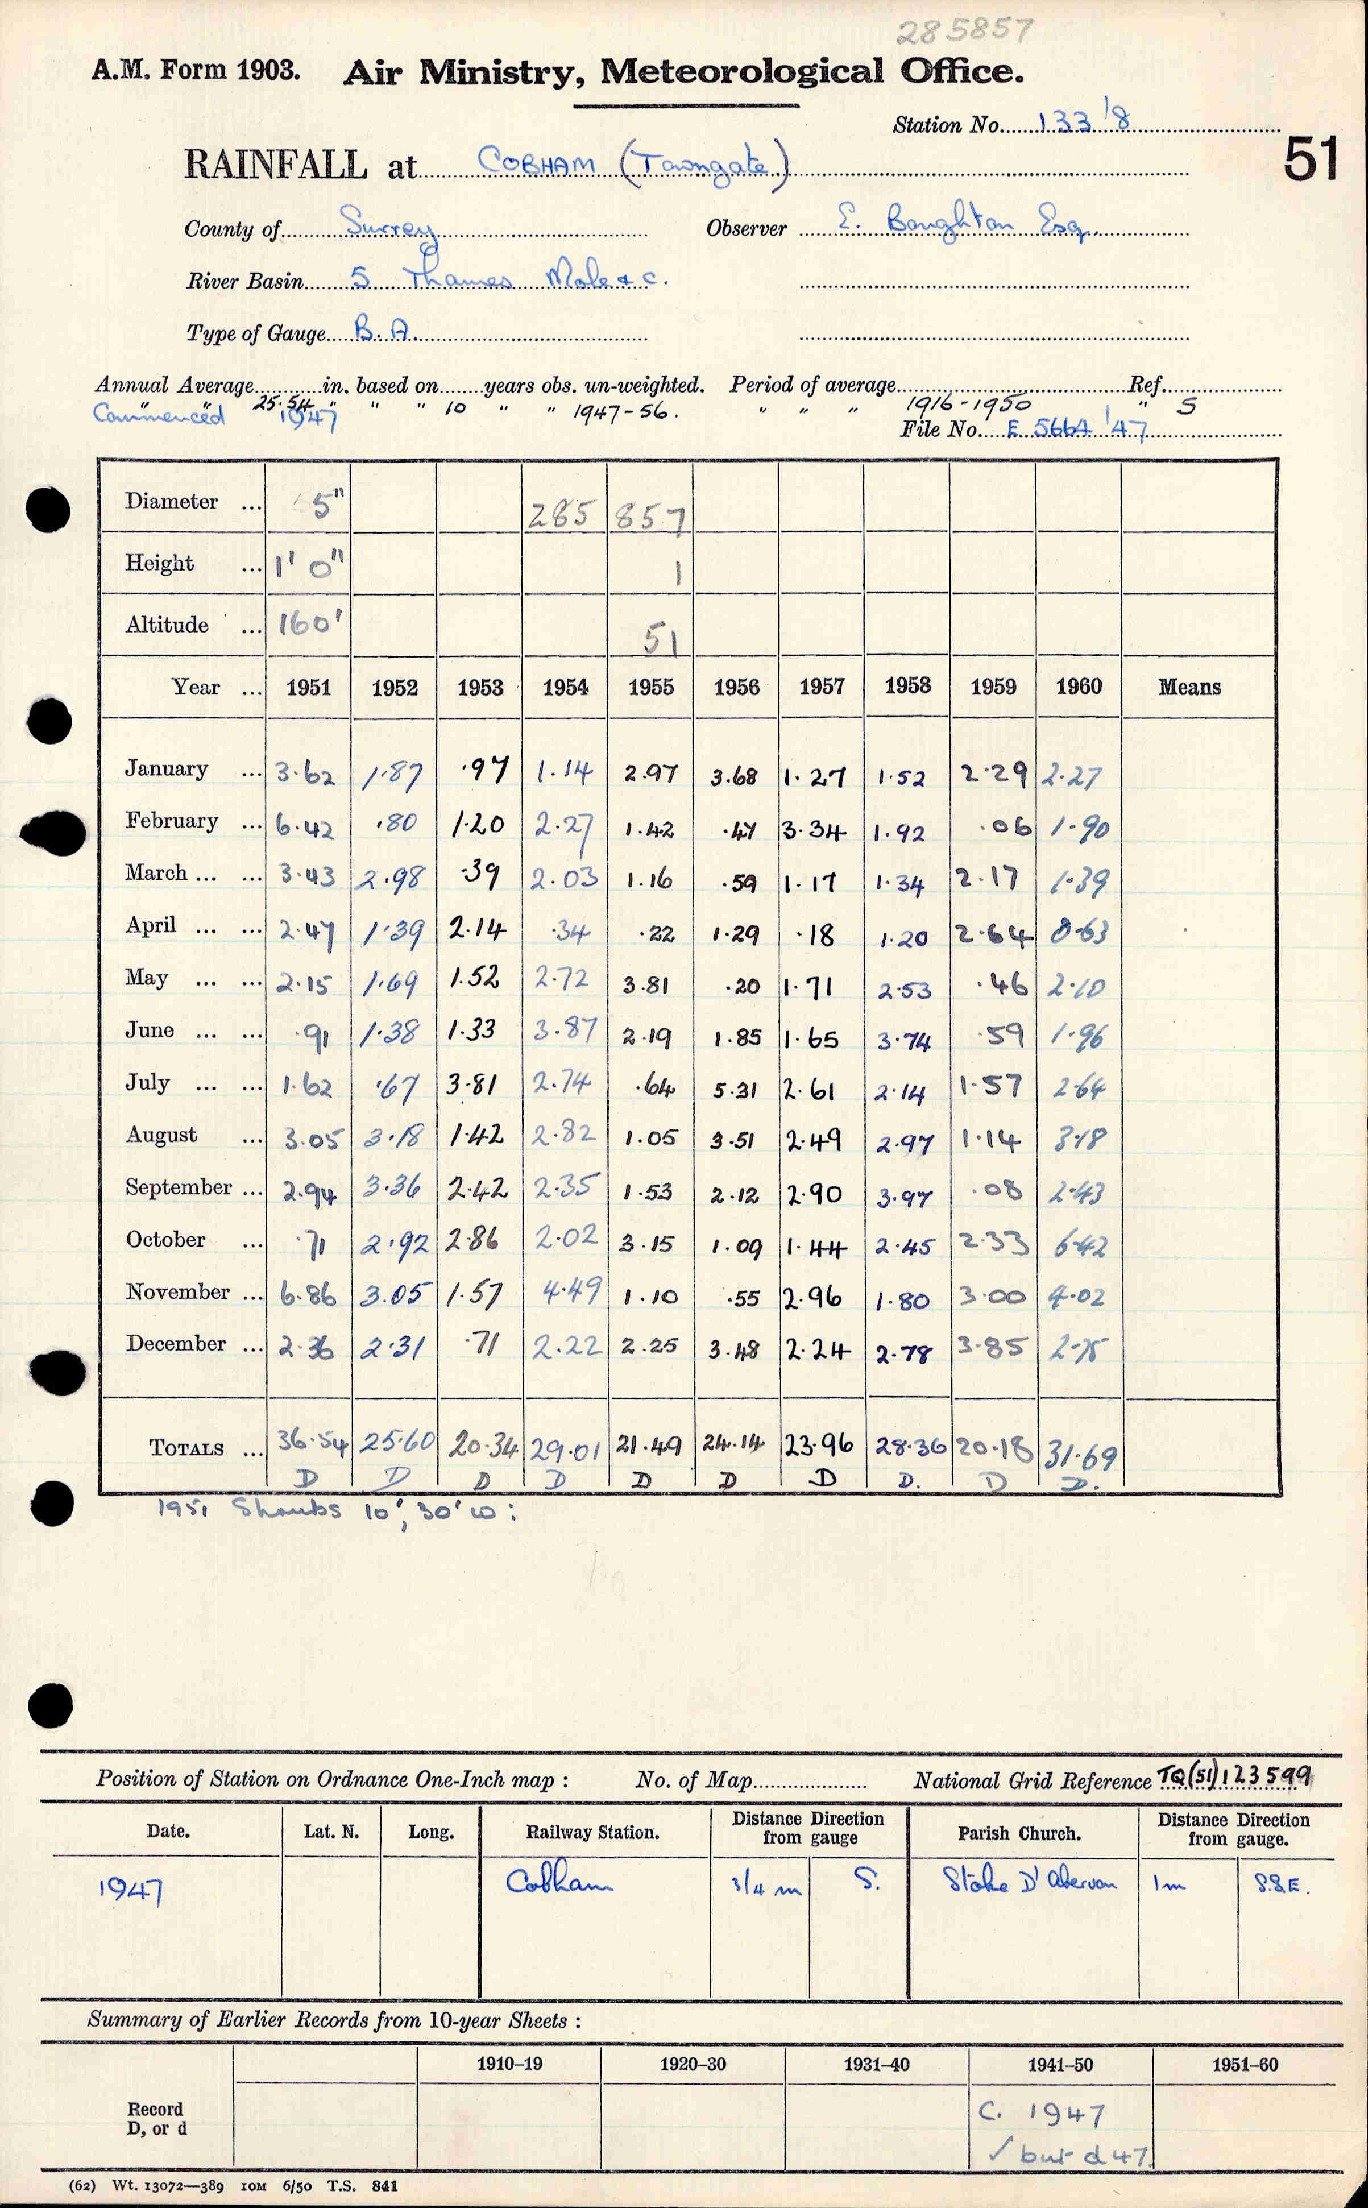 285857
A.M. Form 1903. Air Ministry, Meteorological Office.
Station No. 133/8
51
RAINFALL at COBHAM (Towngate)
County of Surrey Observer E. Boughton Esq.
River Basin 5 Thames Mole & c.
Type of Gauge B.A.
Annual Average in. based on years obs. un-weighted. Period of average Ref.
" 25.54 " " " 10 " " 1947-56. " " " 1916-1950 " S
Commenced 1947 File No. E 5664/47
Diameter ... 5" 285 857
Height ... 1' 0" 1
Altitude ... 160' 51
Year ... 1951 1952 1953 1954 1955 1956 1957 1958 1959 1960 Means
January ... 3.62 1.87 .97 1.14 2.97 3.68 1.27 1.52 2.29 2.27
February ... 6.42 .80 1.20 2.27 1.42 .47 3.34 1.92 .06 1.90
March ... ... 3.43 2.98 .39 2.03 1.16 .59 1.17 1.34 2.17 1.39
April ... ... 2.47 1.39 2.14 .34 .22 1.29 .18 1.20 2.64 0.63
May ... ... 2.15 1.69 1.52 2.72 3.81 .20 1.71 2.53 .46 2.10
June ... ... .91 1.38 1.33 3.87 2.19 1.85 1.65 3.74 .59 1.96
July ... ... 1.62 .67 3.81 2.74 .64 5.31 2.61 2.14 1.57 2.64
August ... 3.05 3.18 1.42 2.82 1.05 3.51 2.49 2.97 1.14 3.18
September ... 2.94 3.36 2.42 2.35 1.53 2.12 2.90 3.97 .08 2.43
October ... .71 2.92 2.86 2.02 3.15 1.09 1.44 2.45 2.33 6.42
November ... 6.86 3.05 1.57 4.49 1.10 .55 2.96 1.80 3.00 4.02
December ... 2.36 2.31 .71 2.22 2.25 3.48 2.24 2.78 3.85 2.75
TOTALS ... 36.54 25.60 20.34 29.01 21.49 24.14 23.96 28.36 20.18 31.69
D D D D D D D D. D D.
1951 Shrubs 10', 30' W:
Position of Station on Ordnance One-Inch map : No. of Map National Grid Reference TQ(51)123599
Date. Lat. N. Long. Railway Station. Distance Direction from gauge Parish Church. Distance Direction from gauge.
1947 Cobham 3/4 m S. Stoke D'Abernon 1m S.S.E.
Summary of Earlier Records from 10-year Sheets :
1910–19 1920–30 1931–40 1941–50 1951–60
Record C. 1947
D, or d ✓ but d 47
(62) Wt. 13072—389 10M 6/50 T.S. 841